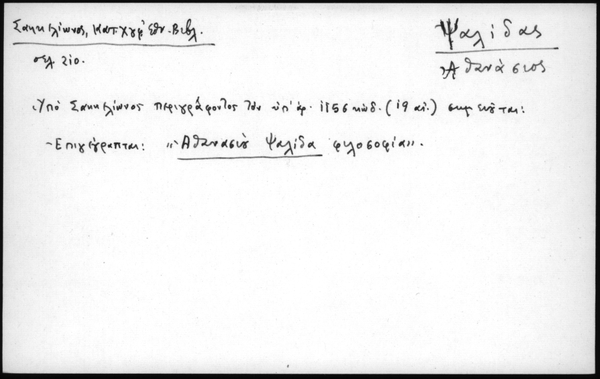 Σακκελίωνος, Κατ. Χγρ. Εθν. Βιβλ.
σελ. 210.
Ψαλίδας
Αθανάσιος
Υπό Σακκελίωνος περιγράφοντος τον υπ' άρ. 1156 κώδ. (19 αι.) σημειούται:
- Επιγέγραπται: «Αθανασίου Ψαλίδα φιλοσοφία».